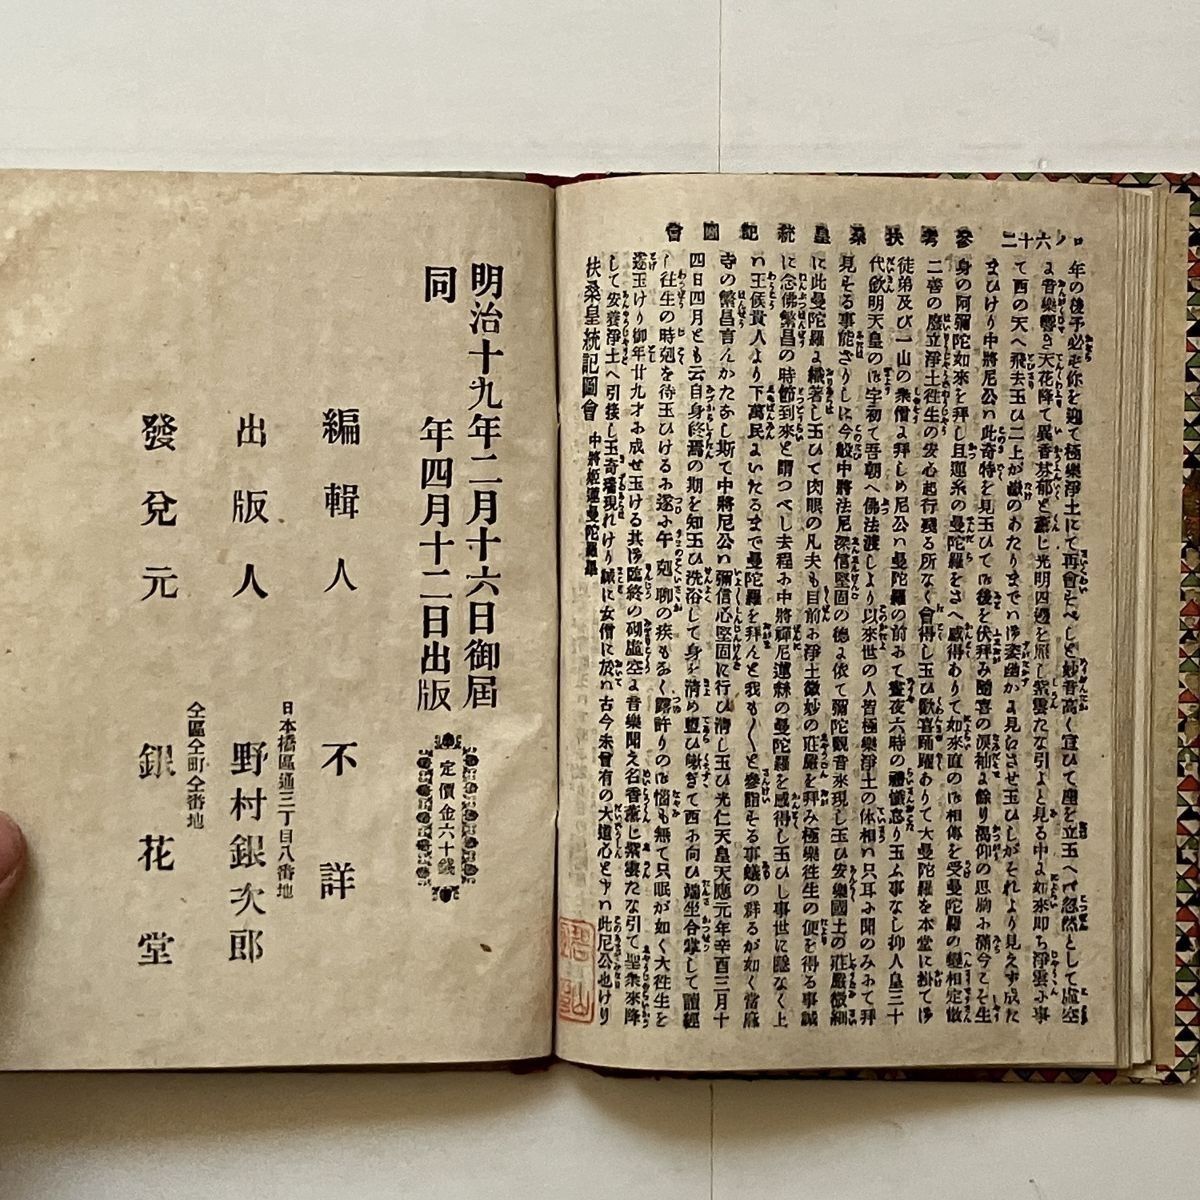 二十六ノロ
參考扶桑皇統記圖會
年の後予必ず你を迎て極樂淨土にて再會すべしと妙音高く宣ひて座を立玉へバ忽然として虛空
に音樂響き天花降て異香芬郁と薰じ光明四邊を照し紫雲たな引よと見る中に如來即ち淨雲に事
て西の天へ飛去玉ひ二上が嶽のあたりまでハ御姿幽かに見にさせ玉ひしがそれより見えず成た
まひけり中將尼公ハ此奇特を見玉ひて御後を伏拜み隨喜の淚袖に餘り渴仰の思胸に滿今こそ生
身の阿彌陀如來を拜し且蓮糸の曼陀羅をさへ感得ありて如來直の御相傳を受曼陀羅の變相定散
二善の廢立淨土徃生の安心起行殘る所なく會得し玉ひ歡喜踊躍ありて大曼陀羅を本堂に掛て御
徒弟及び一山の衆僧に拜しめ尼公ハ曼陀羅の前にて晝夜六時の禮懺怠り玉ふ事なし抑人皇三十
代欽明天皇の御宇初て吾朝へ佛法渡しより以來世の人皆極樂淨土の体相ハ只耳に聞のみにて拜
見する事能ざりしに今般中將法尼深信堅固の德に依て彌陀觀音來現し玉ひ安樂國土の莊嚴微細
に此曼陀羅に織著し玉ひて肉眼の凡夫も目前に淨土微妙の莊嚴を拜み極樂徃生の便を得る事誠
に念佛繁昌の時節到來と謂つべし去程に中將禪尼蓮絲の曼陀羅を感得し玉ひし事世に隱なく上
ハ王侯貴人より下萬民にいたるまで曼陀羅を拜んと我も〳〵と參詣する事蟻の群るが如く當麻
寺の繁昌言んかたなし斯て中將尼公ハ彌信心堅固に行ひ淸し玉ひ光仁天皇天應元年辛酉三月十
四日四月とも云自身終焉の期を知玉ひ洗浴して身を淸め盥ひ嗽ぎて西に向ひ端坐合掌して讀經
し徃生の時剋を待玉ひけるに遂に午剋聊の疾もなく露許りの御惱も無て只眠が如く大徃生を
遂玉けり御年廿九才に成せ玉ける其御臨終の砌虛空に音樂聞え名香薰じ紫雲たな引て聖衆來降
して安養淨土へ引接し玉奇瑞現れけり誠に女僧に於ハ古今未曾有の大道心と申ハ此尼公也けり
扶桑皇統記圖會 中將姬蓮曼陀羅畢
明治十九年二月十六日御屆
同 年四月十二日出版
定價金六十錢
編輯人 不詳
日本橋區通三丁目八番地
出版人 野村銀次郎
仝區仝町仝番地
發兌元 銀花堂